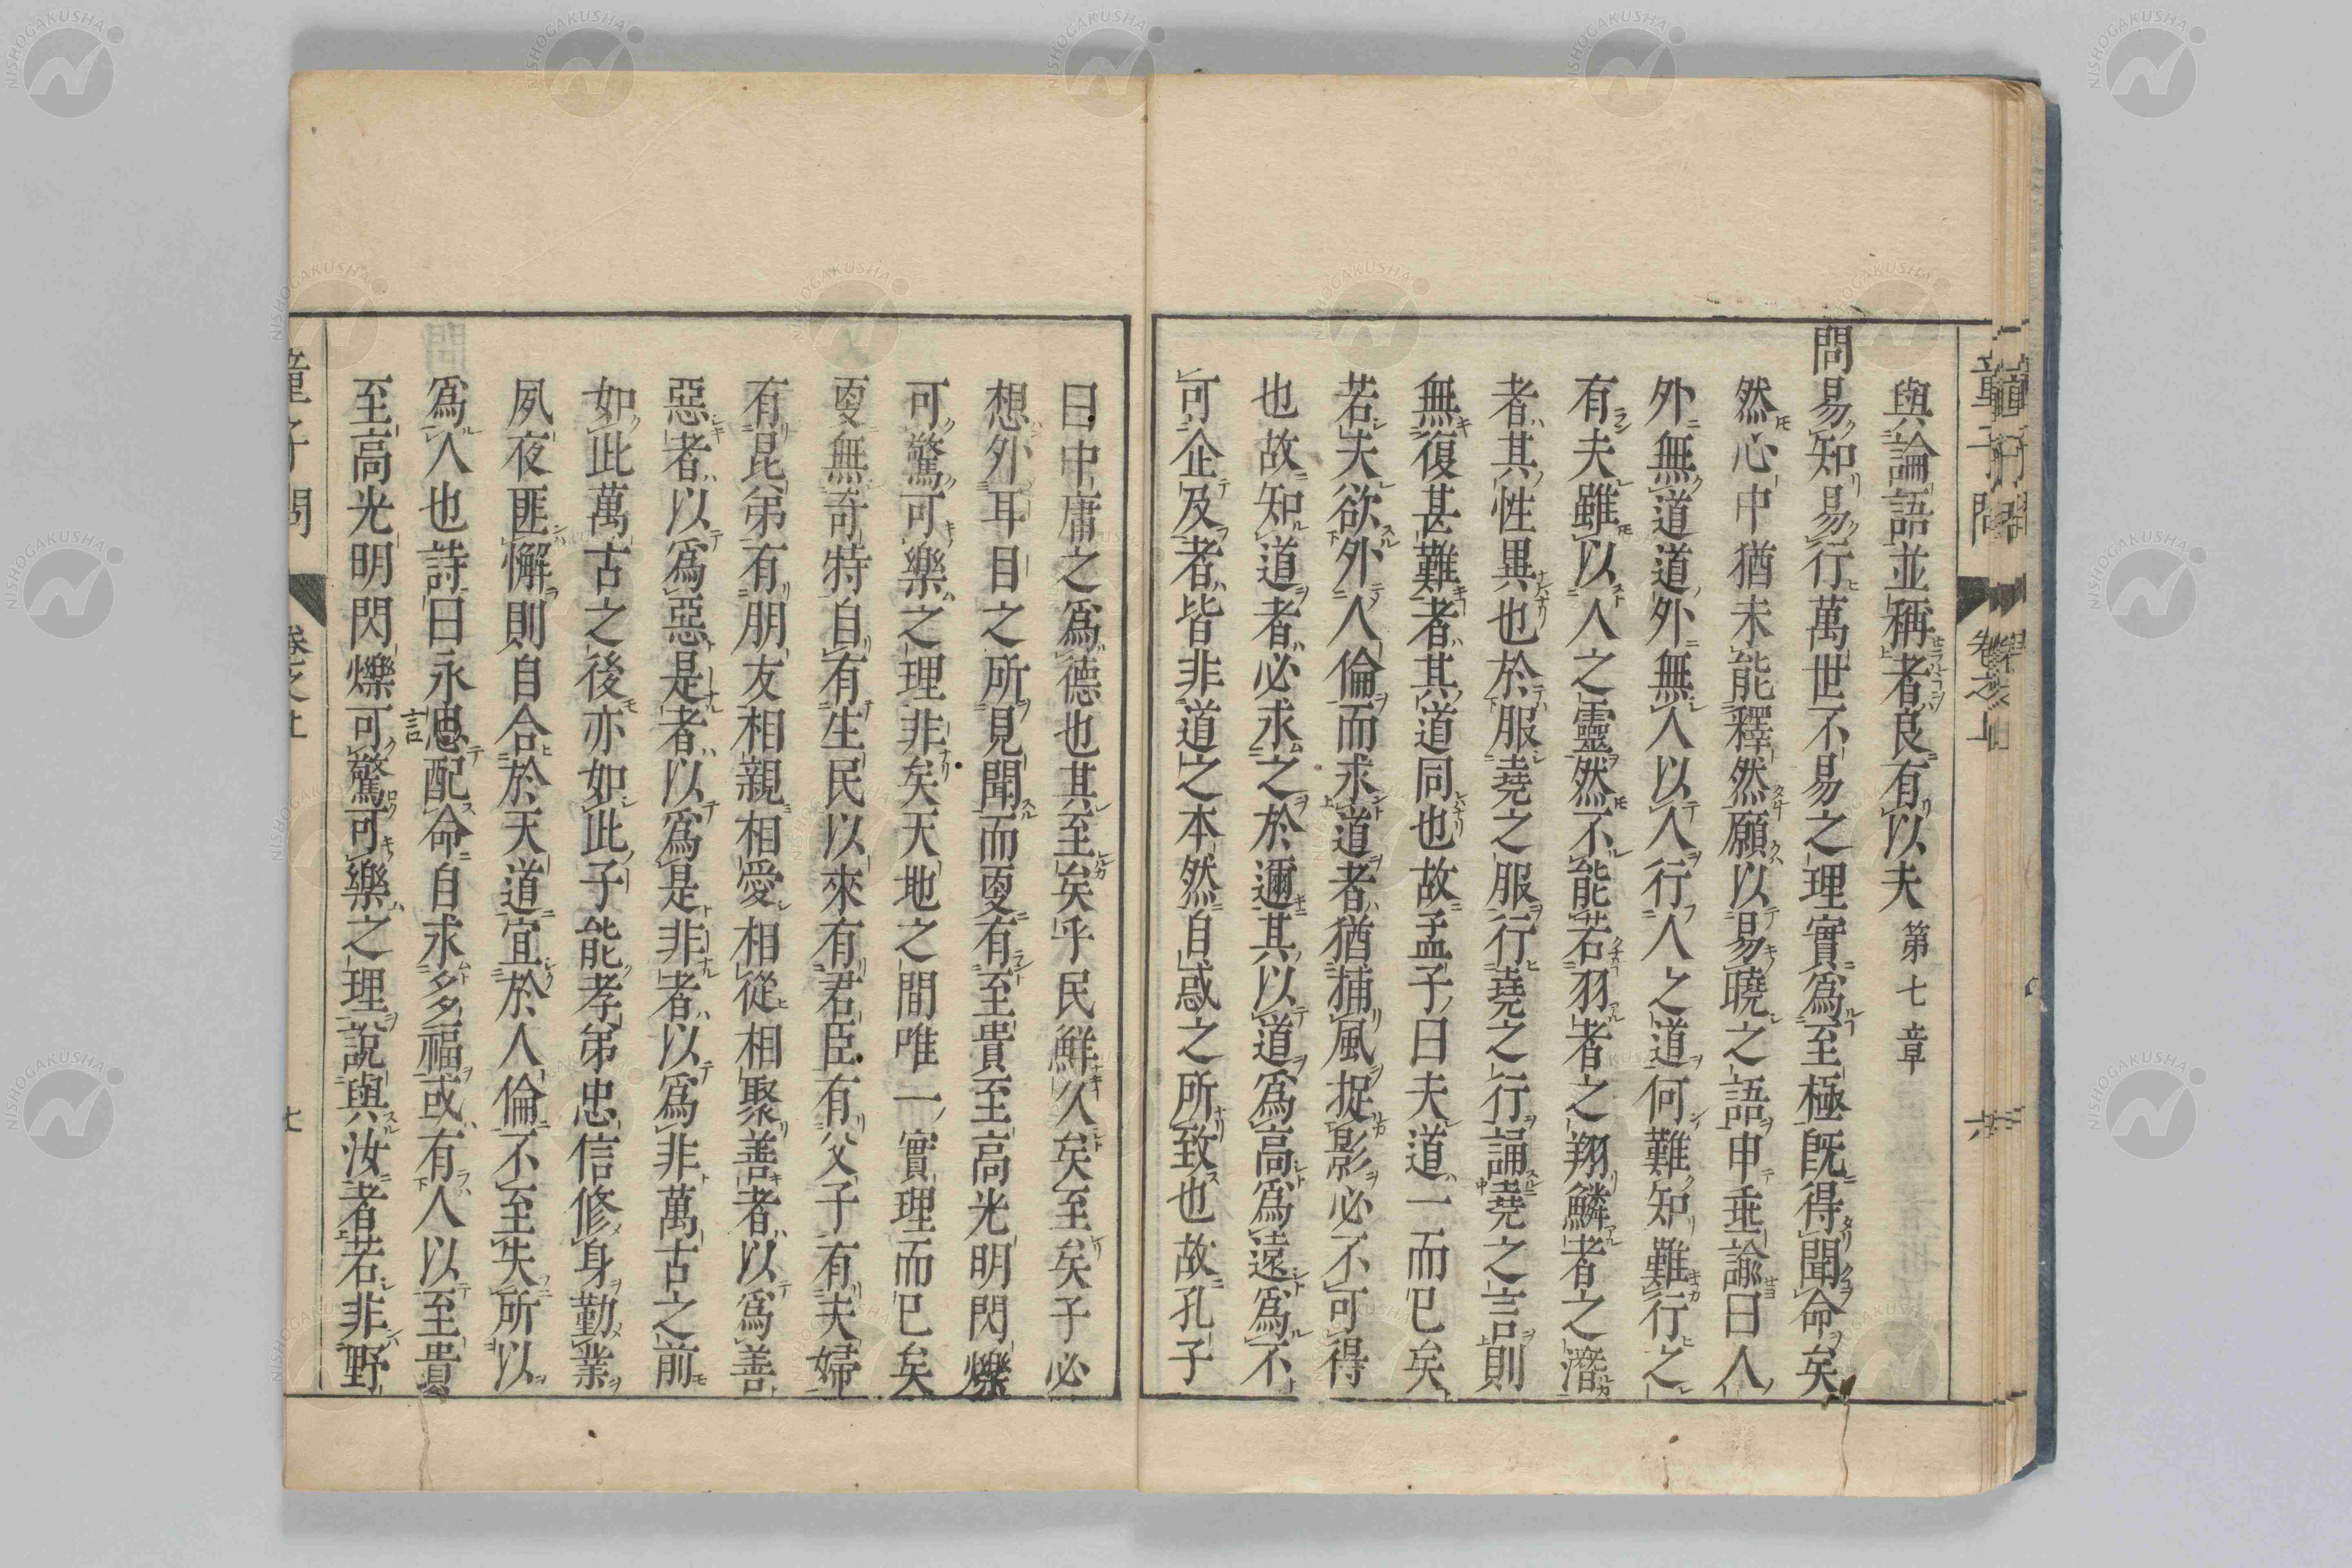 與論語並稱者良有以夫 第七章
問易知易行萬世不易之理實爲至極既得聞命矣
然心中猶未能釋然願以易曉之語申垂諭曰人
外無道道外無人以人行人之道何難知難行之
有夫雖以人之靈然不能若羽者之翔鱗者之潛
者其性異也於服堯之服行堯之行誦堯之言則
無復甚難者其道同也故孟子曰夫道一而已矣
若夫欲外人倫而求道者猶捕風捉影必不可得
也故知道者必求之於邇其以道爲高爲遠爲不
可企及者皆非道之本然自惑之所致也故孔子
曰中庸之爲德也其至矣乎民鮮久矣至矣子必
想外耳目之所見聞而更有至貴至高光明閃爍
可驚可樂之理非矣天地之間唯一實理而已矣
更無奇特自有生民以來有君臣有父子有夫婦
有昆弟有朋友相親相愛相從相聚善者以爲善
惡者以爲惡是者以爲是非者以爲非萬古之前
如此萬古之後亦如此子能孝弟忠信修身勤業
夙夜匪懈則自合於天道宜於人倫不至失所以
爲人也詩曰永思配命自求多福或有人以至貴
言
至高光明閃爍可驚可樂之理說與汝者若非野
童子問 卷之上 七
NISHOGAKUSHA